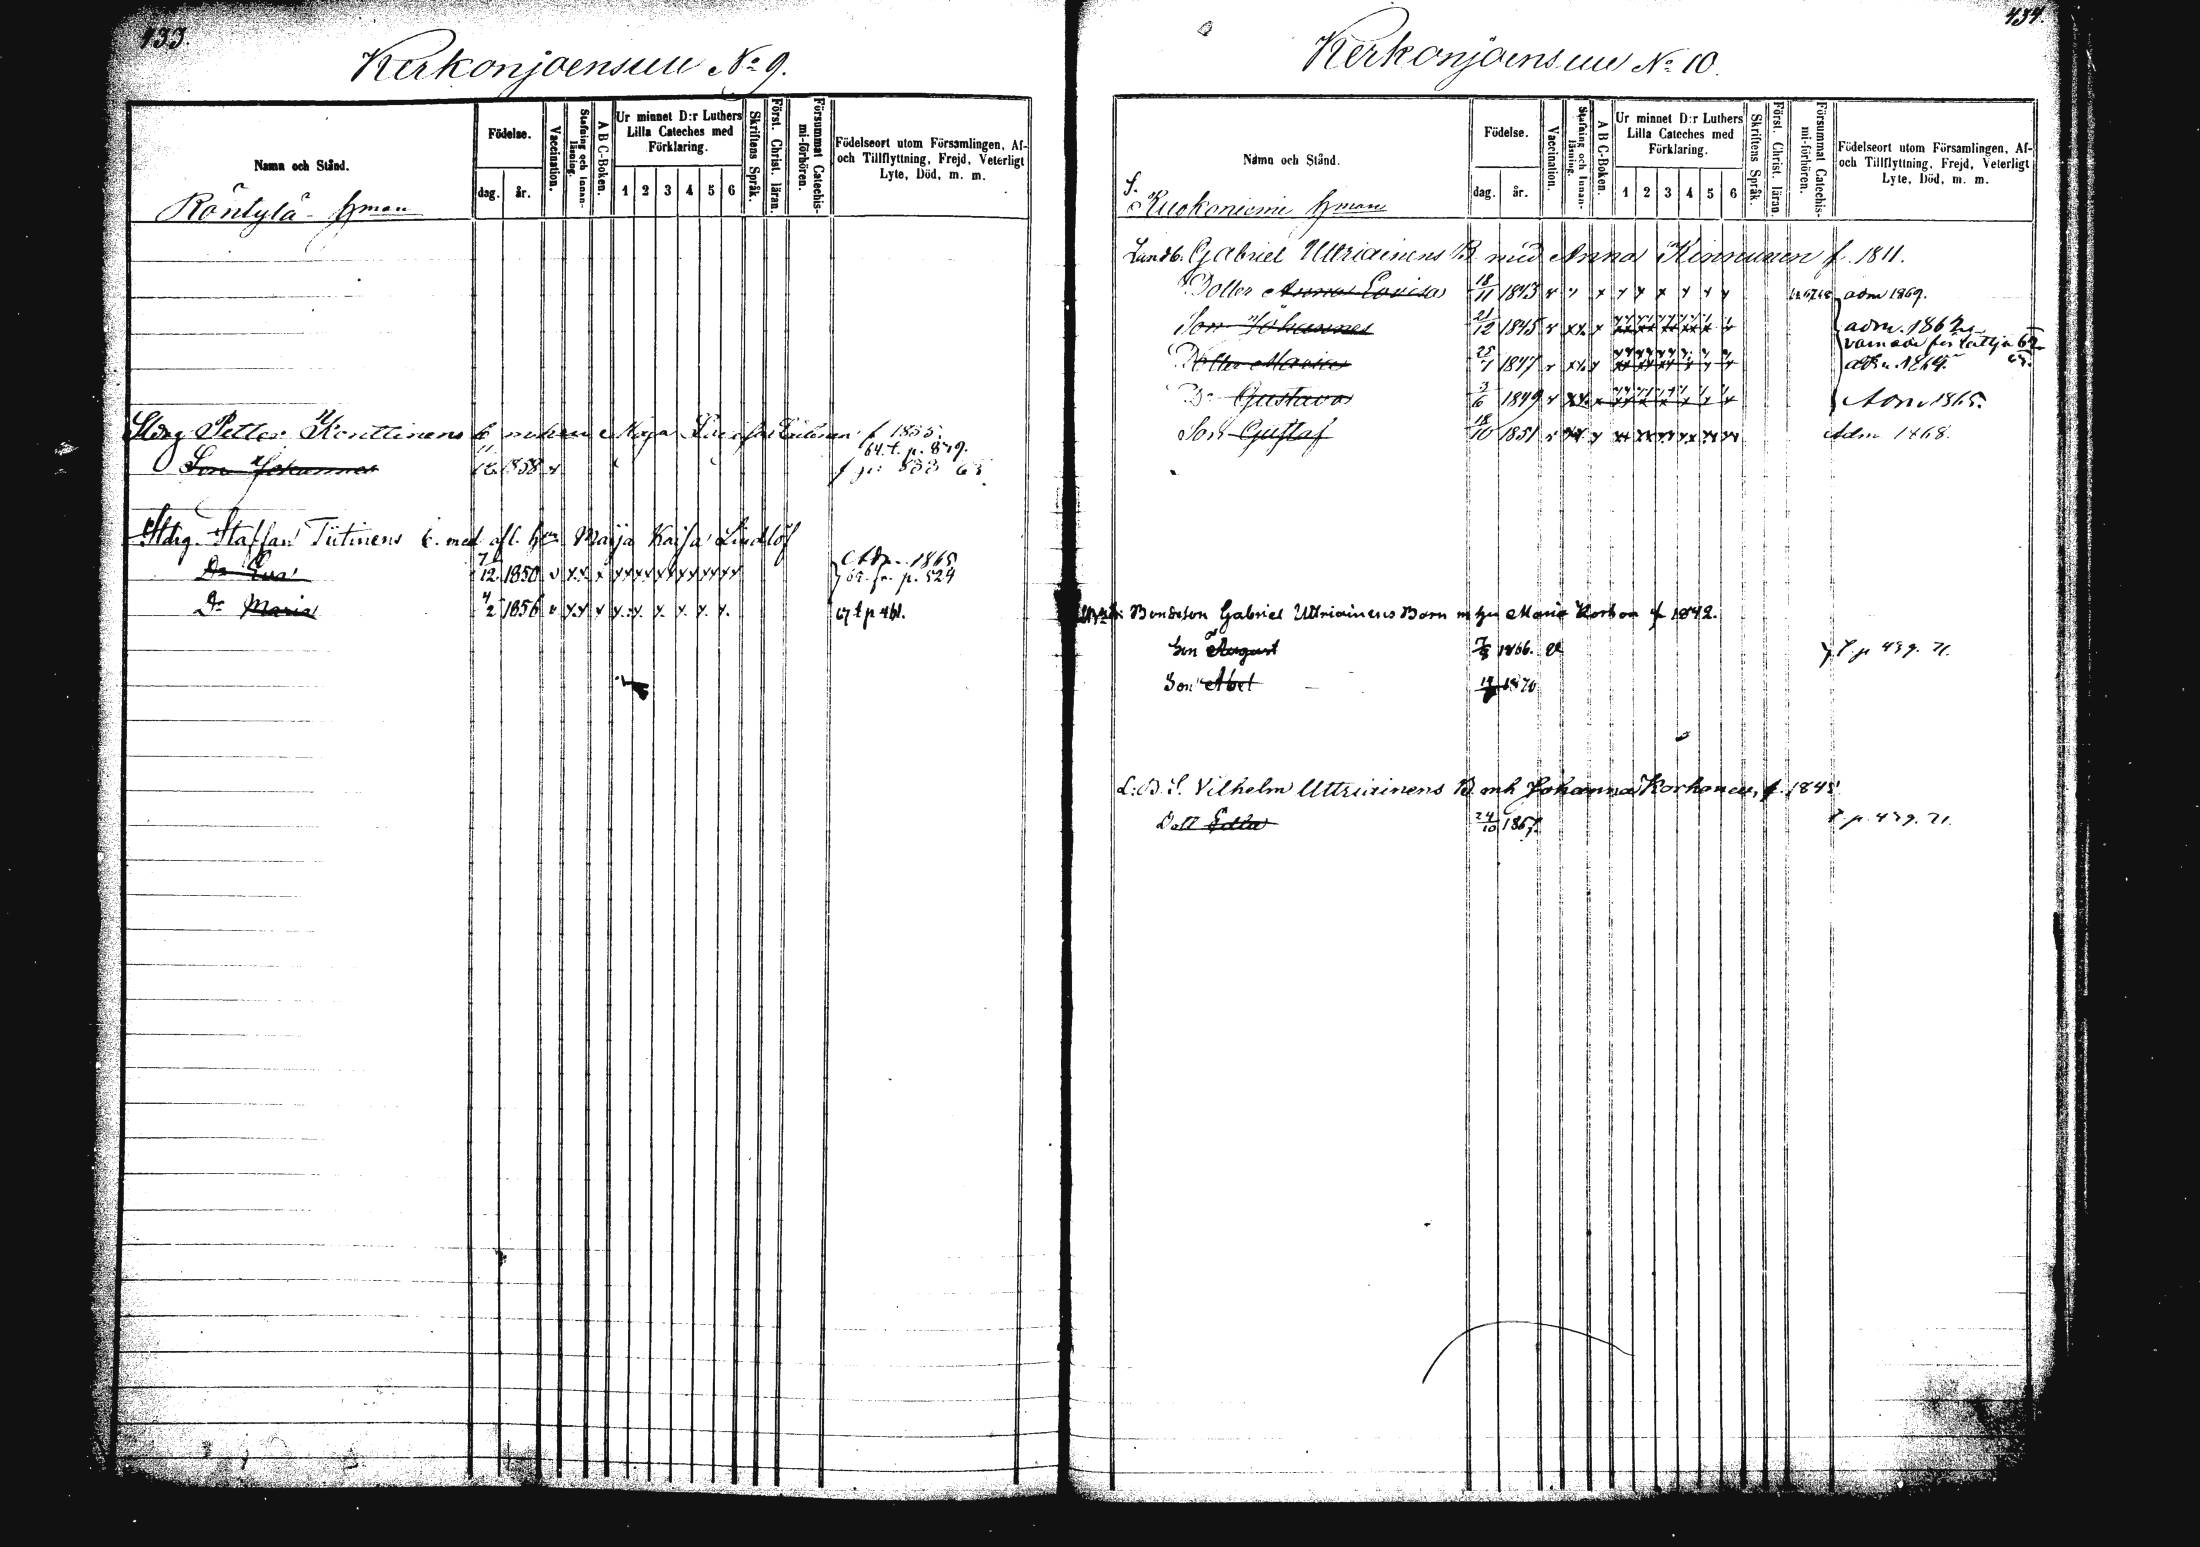 433.
Kerkonjoensuu No 9.
Namn och Stånd.
Födelse.
dag. år.
Vaccination.
Stafning och Innan-läsning.
A B C-Boken.
Ur minnet D:r Luthers Lilla Cateches med Förklaring.
1 2 3 4 5 6
Skriftens Språk.
Först. Christ. läran.
Försummat Catechis-mi-förhören.
Födelseort utom Församlingen, Af-
och Tillflyttning, Frejd, Veterligt
Lyte, Död, m. m.
Röntylä hman
Petter Konttinens b. f 1835.
64. t. p. 879.
Son Johannes 1858
Staffan Tiitinens b. med afl. hun Maija Kaisa Lindlöf
Adm. 1865
Dr Eva 7/12 1850 v x x x
fr. p. 524
Dr Maria 4/2 1856 v x x x x x x x x x
67 t p 461.
434.
Kerkonjoensuu No 10.
Namn och Stånd.
Födelse.
dag. år.
Vaccination.
Stafning och Innan-läsning.
A B C-Boken.
Ur minnet D:r Luthers Lilla Cateches med Förklaring.
1 2 3 4 5 6
Skriftens Språk.
Först. Christ. läran.
Försummat Catechis-mi-förhören.
Födelseort utom Församlingen, Af-
och Tillflyttning, Frejd, Veterligt
Lyte, Död, m. m.
S.
Kuokoniemi hman
Landb. Gabriel Uttriainens B. med Anna Kinnunen f. 1811.
Dotter Anna Lovisa 18/11 1843 adm 1869.
Son Johannes 21/12 1845 adm. 1862
Dotter Maria 25/7 1847 adm. 1864.
Dr Gustava 3/6 1849 Adm 1865.
Son Gustaf 18/10 1851 Adm 1868.
Bondeson Gabriel Uttriainens Barn m hu Maria f 1842.
Son August 1866. t. p 439. 71.
Son Abel 1870
L.B.S. Vilhelm Uttriainens B. mh Johanna Korhonen, f. 1845
Dott Edla 24/10 1867. t. p. 439. 71.